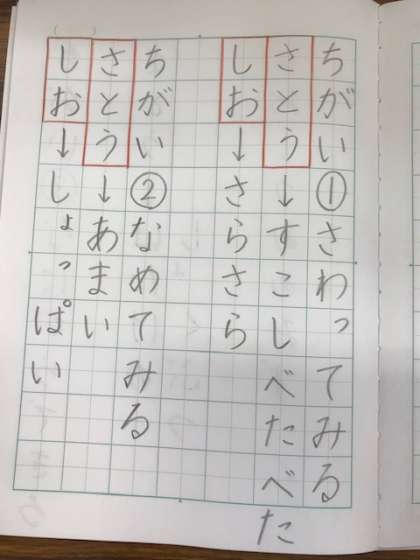 ちがい①さわってみる
さとう↓すこしべたべた
しお↓さらさら
ちがい②なめてみる
さとう↓あまい
しお↓しょっぱい